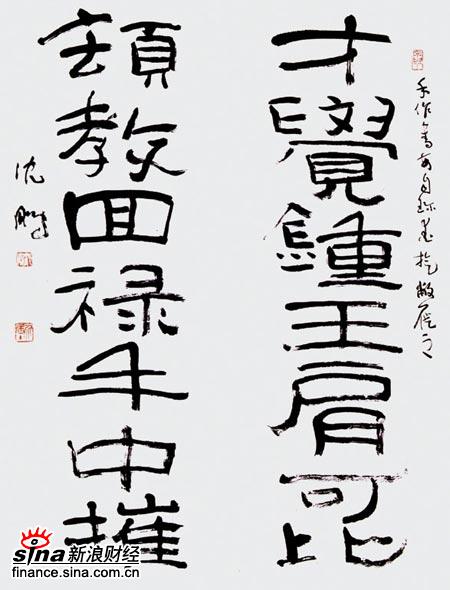 才覺鍾王肩可比
頓教回禄手中摧
沈鵬
sina新浪财经
finance.sina.com.cn